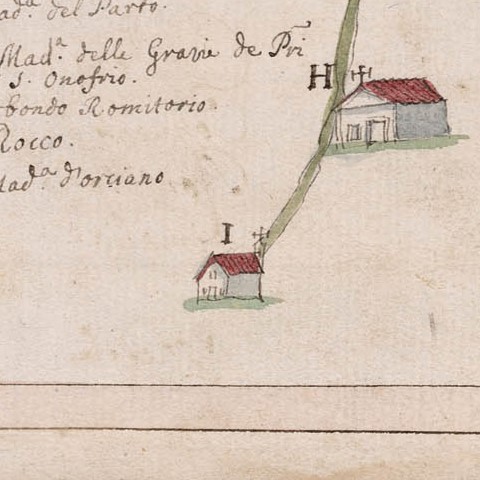 Mad.ª del Parto.
Mad.ª delle Gravie de Pri
S. Onofrio.
bondo Romitorio
Rocco.
Mad.ª d'orciano
H
I